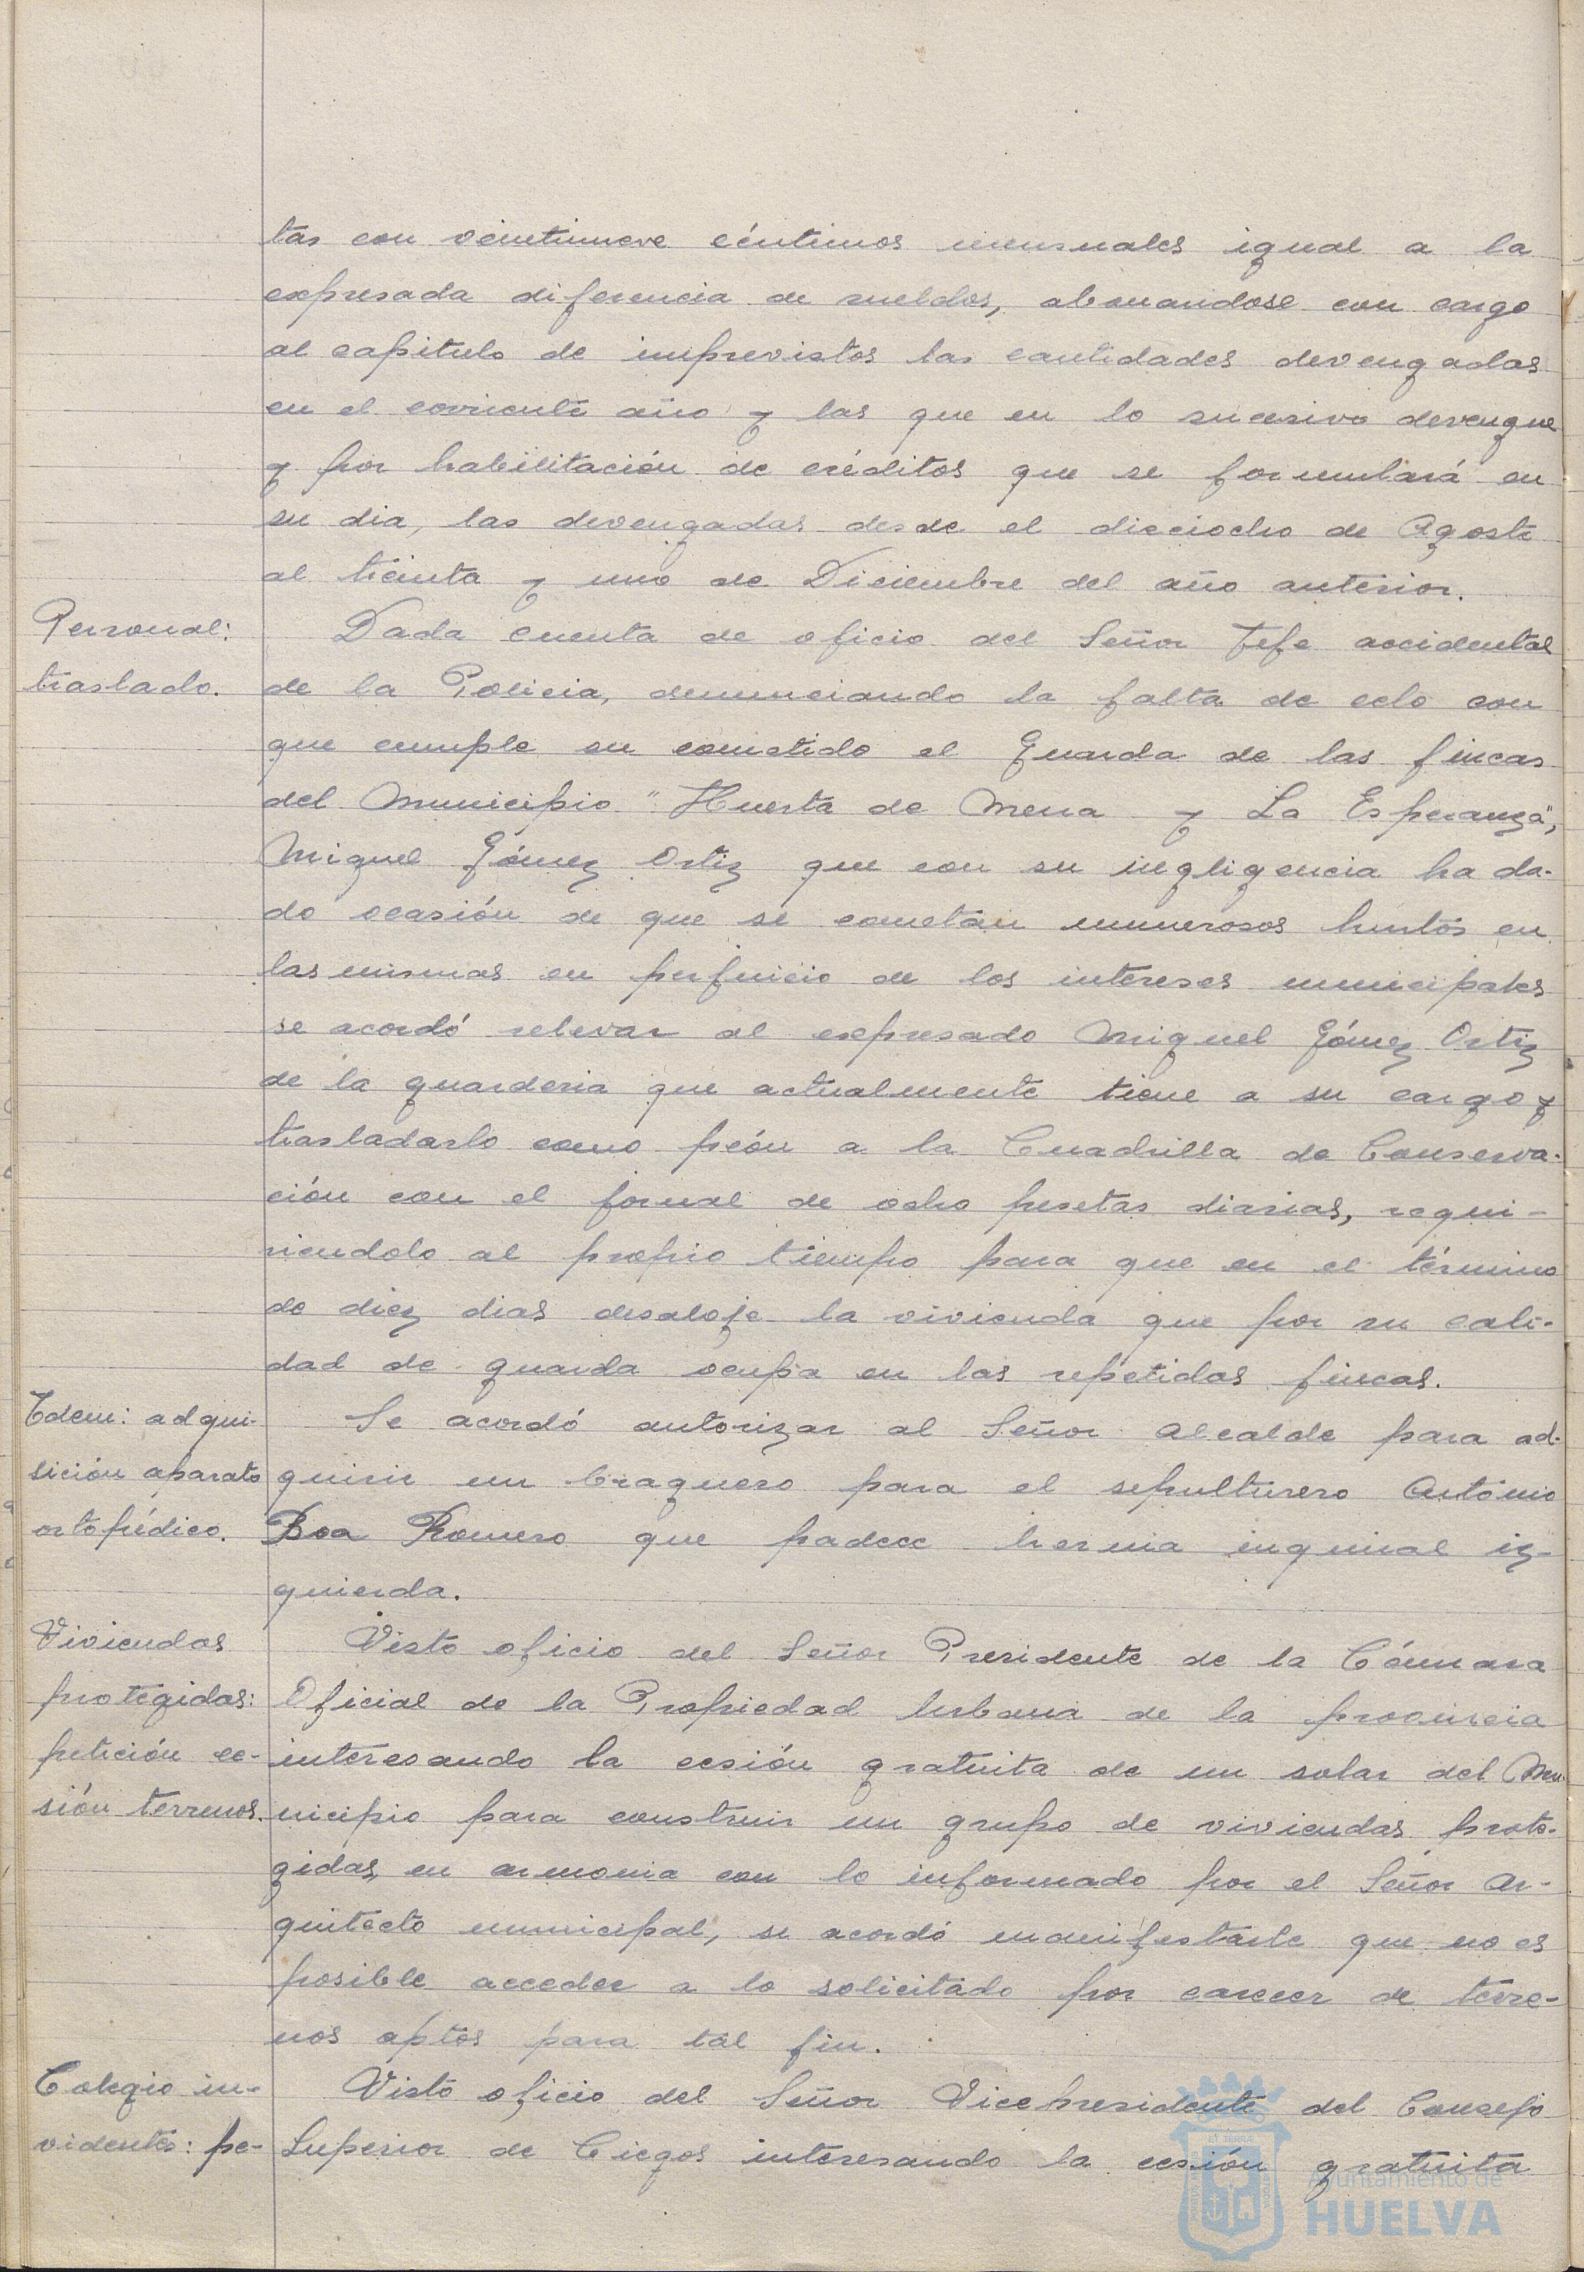 tas con veintinueve céntimos mensuales igual a la
expresada diferencia de sueldos, abonandose con cargo
al capitulo de imprevistos las cantidades devengadas
en el corriente año y las que en lo sucesivo devengue
y por habilitación de créditos que se formulará en
su dia, las devengadas desde el dieciocho de Agosto
al treinta y uno de Diciembre del año anterior.
Personal:
traslado.
Dada cuenta de oficio del Señor Jefe accidental
de la Policia, denunciando la falta de celo con
que cumple su cometido el Guarda de las fincas
del Municipio "Huerta de Mena y La Esperanza",
Miguel Gómez Ortiz que con su negligencia ha da-
do ocasión de que se cometan numerosos hurtos en
las mismas en perjuicio de los intereses municipales
se acordó relevar al expresado Miguel Gómez Ortiz
de la guarderia que actualmente tiene a su cargo y
trasladarlo como peón a la Cuadrilla de Conserva-
ción con el jornal de ocho pesetas diarias, requi-
riendolo al propio tiempo para que en el término
de diez dias desaloje la vivienda que por su cali-
dad de guarda ocupa en las repetidas fincas.
Idem: adqui-
sición aparato
ortopédico.
Se acordó autorizar al Señor Alcalde para ad-
quirir un braguero para el sepulturero Antonio
Boa Romero que padece hernia inguinal iz-
quierda.
Viviendas
protegidas:
petición ce-
sión terrenos.
Visto oficio del Señor Presidente de la Cámara
Oficial de la Propiedad Urbana de la provincia
interesando la cesión gratuita de un solar del Mu-
nicipio para construir un grupo de viviendas prote-
gidas, en armonia con lo informado por el Señor Ar-
quitecto municipal, se acordó manifestarle que no es
posible acceder a lo solicitado por carecer de terre-
nos aptos para tal fin.
Colegio in-
videntes: pe-
Visto oficio del Señor Vicepresidente del Consejo
Superior de Ciegos interesando la cesión gratuita
Ayuntamiento de
HUELVA